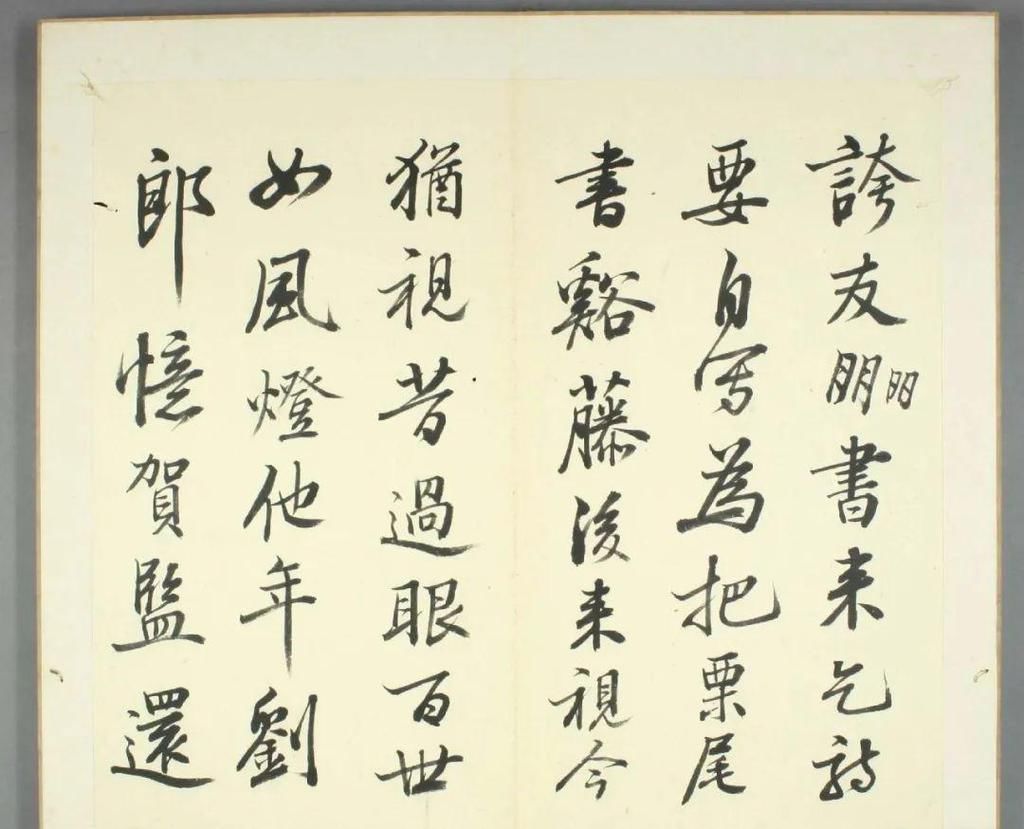 誇友朋朋書来乞詩
要自写為把栗尾
書谿藤後来視今
猶視昔過眼百世
如風燈他年劉
郎憶賀監還